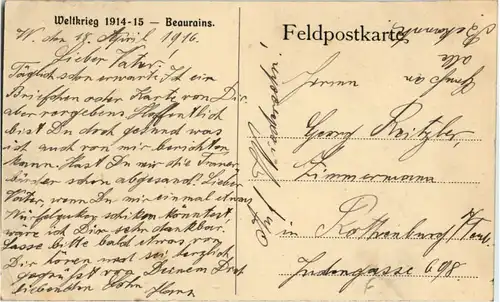 Weltkrieg 1914-15 — Beaurains.
W. den 18. April 1916.
Lieber Vater!
Täglich schon erwarte Ich ein
Briefchen oder Karte von Dir
aber vergebens Hoffentlich
bist Du doch gesund was
ich auch von mir berichten
kann. Hast Du mir die Trauer
bänder schon abgesand? Lieber
Vater, wenn Du mir einmal etwas
schiken könntest
wäre ich Dir sehr dankbar.
Lasse bitte bald etwas von
Dir hören und sei herzlich
gegrüßt von Deinem Dich
liebenden Sohn
Hans
Feldpostkarte
Gruß an
alle
Bekannte
Herrn
Georg
Zimmermann
in Rothenburg / Taub.
Judengasse 698.